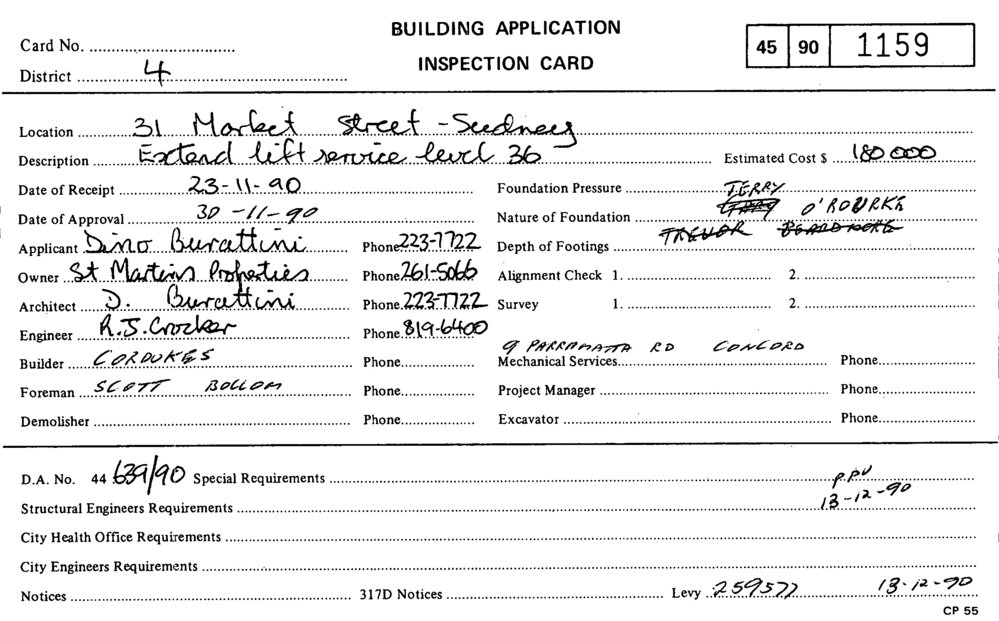 BUILDING APPLICATION
INSPECTION CARD
Card No.
District 4
45 90 1159
Location 31 Market Street - Suedney
Description Extend lift service level 36 Estimated Cost $ 180 000
Date of Receipt 23-11-90 Foundation Pressure TERRY
Date of Approval 30-11-90 Nature of Foundation O'ROURKE
Applicant Dino Burattini Phone 223-7722 Depth of Footings TREVOR BEARDMORE
Owner St Martins Properties Phone 261-5066 Alignment Check 1. 2.
Architect D. Burattini Phone 223-7722 Survey 1. 2.
Engineer R.J. Crocker Phone 819-6400
9 PARRAMATTA RD CONCORD
Builder CORDUKES Phone Mechanical Services Phone
Foreman SCOTT BOLLOM Phone Project Manager Phone
Demolisher Phone Excavator Phone
D.A. No. 44 639/90 Special Requirements PPU
Structural Engineers Requirements 13-12-90
City Health Office Requirements
City Engineers Requirements
Notices 317D Notices Levy 259577 13-12-90
CP 55